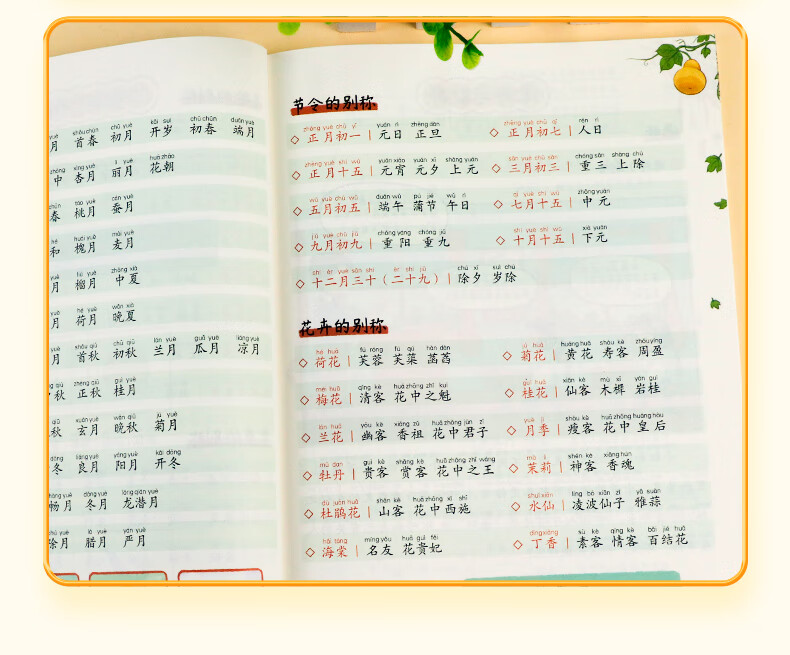 月 首春 初月 开岁 初春 端月
中 杏月 丽月 花朝
春 桃月 蚕月
和 槐月 麦月
月 榴月 中夏
月 荷月 晚夏
月 首秋 初秋 兰月 瓜月 凉月
秋 正秋 桂月
秋 玄月 晚秋 菊月
冬 良月 阳月 开冬
畅月 冬月 龙潜月
涂月 腊月 严月
节令的别称
zhēng yuè chū yī yuán rì zhēng dàn zhēng yuè chū qī rén rì
正月初一 | 元日 正旦 正月初七 | 人日
zhēng yuè shí wǔ yuán xiāo yuán xī shàng yuán sān yuè chū sān chóng sān shàng chú
正月十五 | 元宵 元夕 上元 三月初三 | 重三 上除
wǔ yuè chū wǔ duān wǔ pú jié wǔ rì qī yuè shí wǔ zhōng yuán
五月初五 | 端午 蒲节 午日 七月十五 | 中元
jiǔ yuè chū jiǔ chóng yáng chóng jiǔ shí yuè shí wǔ xià yuán
九月初九 | 重阳 重九 十月十五 | 下元
shí èr yuè sān shí èr shí jiǔ chú xī suì chú
十二月三十（二十九） | 除夕 岁除
花卉的别称
hé huā fú róng fú qú hàn dàn jú huā huáng huā shòu kè zhōu yíng
荷花 | 芙蓉 芙蕖 菡萏 菊花 | 黄花 寿客 周盈
méi huā qīng kè huā zhōng zhī kuí guì huā xiān kè mù xī yán guì
梅花 | 清客 花中之魁 桂花 | 仙客 木樨 岩桂
lán huā yōu kè xiāng zǔ huā zhōng jūn zǐ yuè jì shòu kè huā zhōng huáng hòu
兰花 | 幽客 香祖 花中君子 月季 | 瘦客 花中皇后
mǔ dan guì kè shǎng kè huā zhōng zhī wáng mò lì shén kè xiāng hún
牡丹 | 贵客 赏客 花中之王 茉莉 | 神客 香魂
dù juān huā shān kè huā zhōng xī shī shuǐ xiān líng bō xiān zǐ yǎ suàn
杜鹃花 | 山客 花中西施 水仙 | 凌波仙子 雅蒜
hǎi táng míng yǒu huā guì fēi dīng xiāng sù kè qíng kè bǎi jié huā
海棠 | 名友 花贵妃 丁香 | 素客 情客 百结花